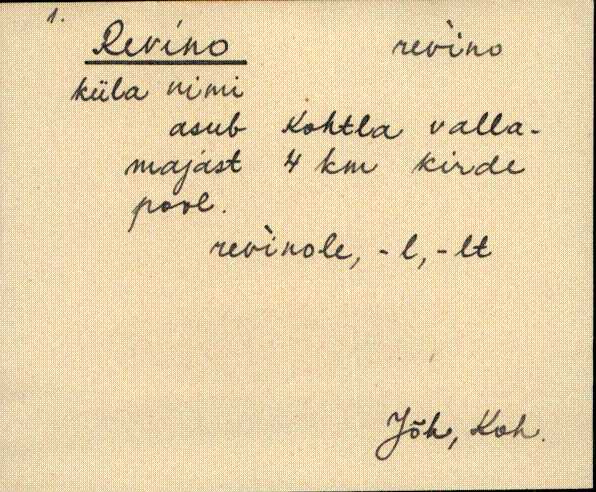 1.
Revino revìno
küla nimi
asub Kohtla valla-
majast 4 km kirde
pool.
revìnole, -l, -lt
Jõh, Koh.